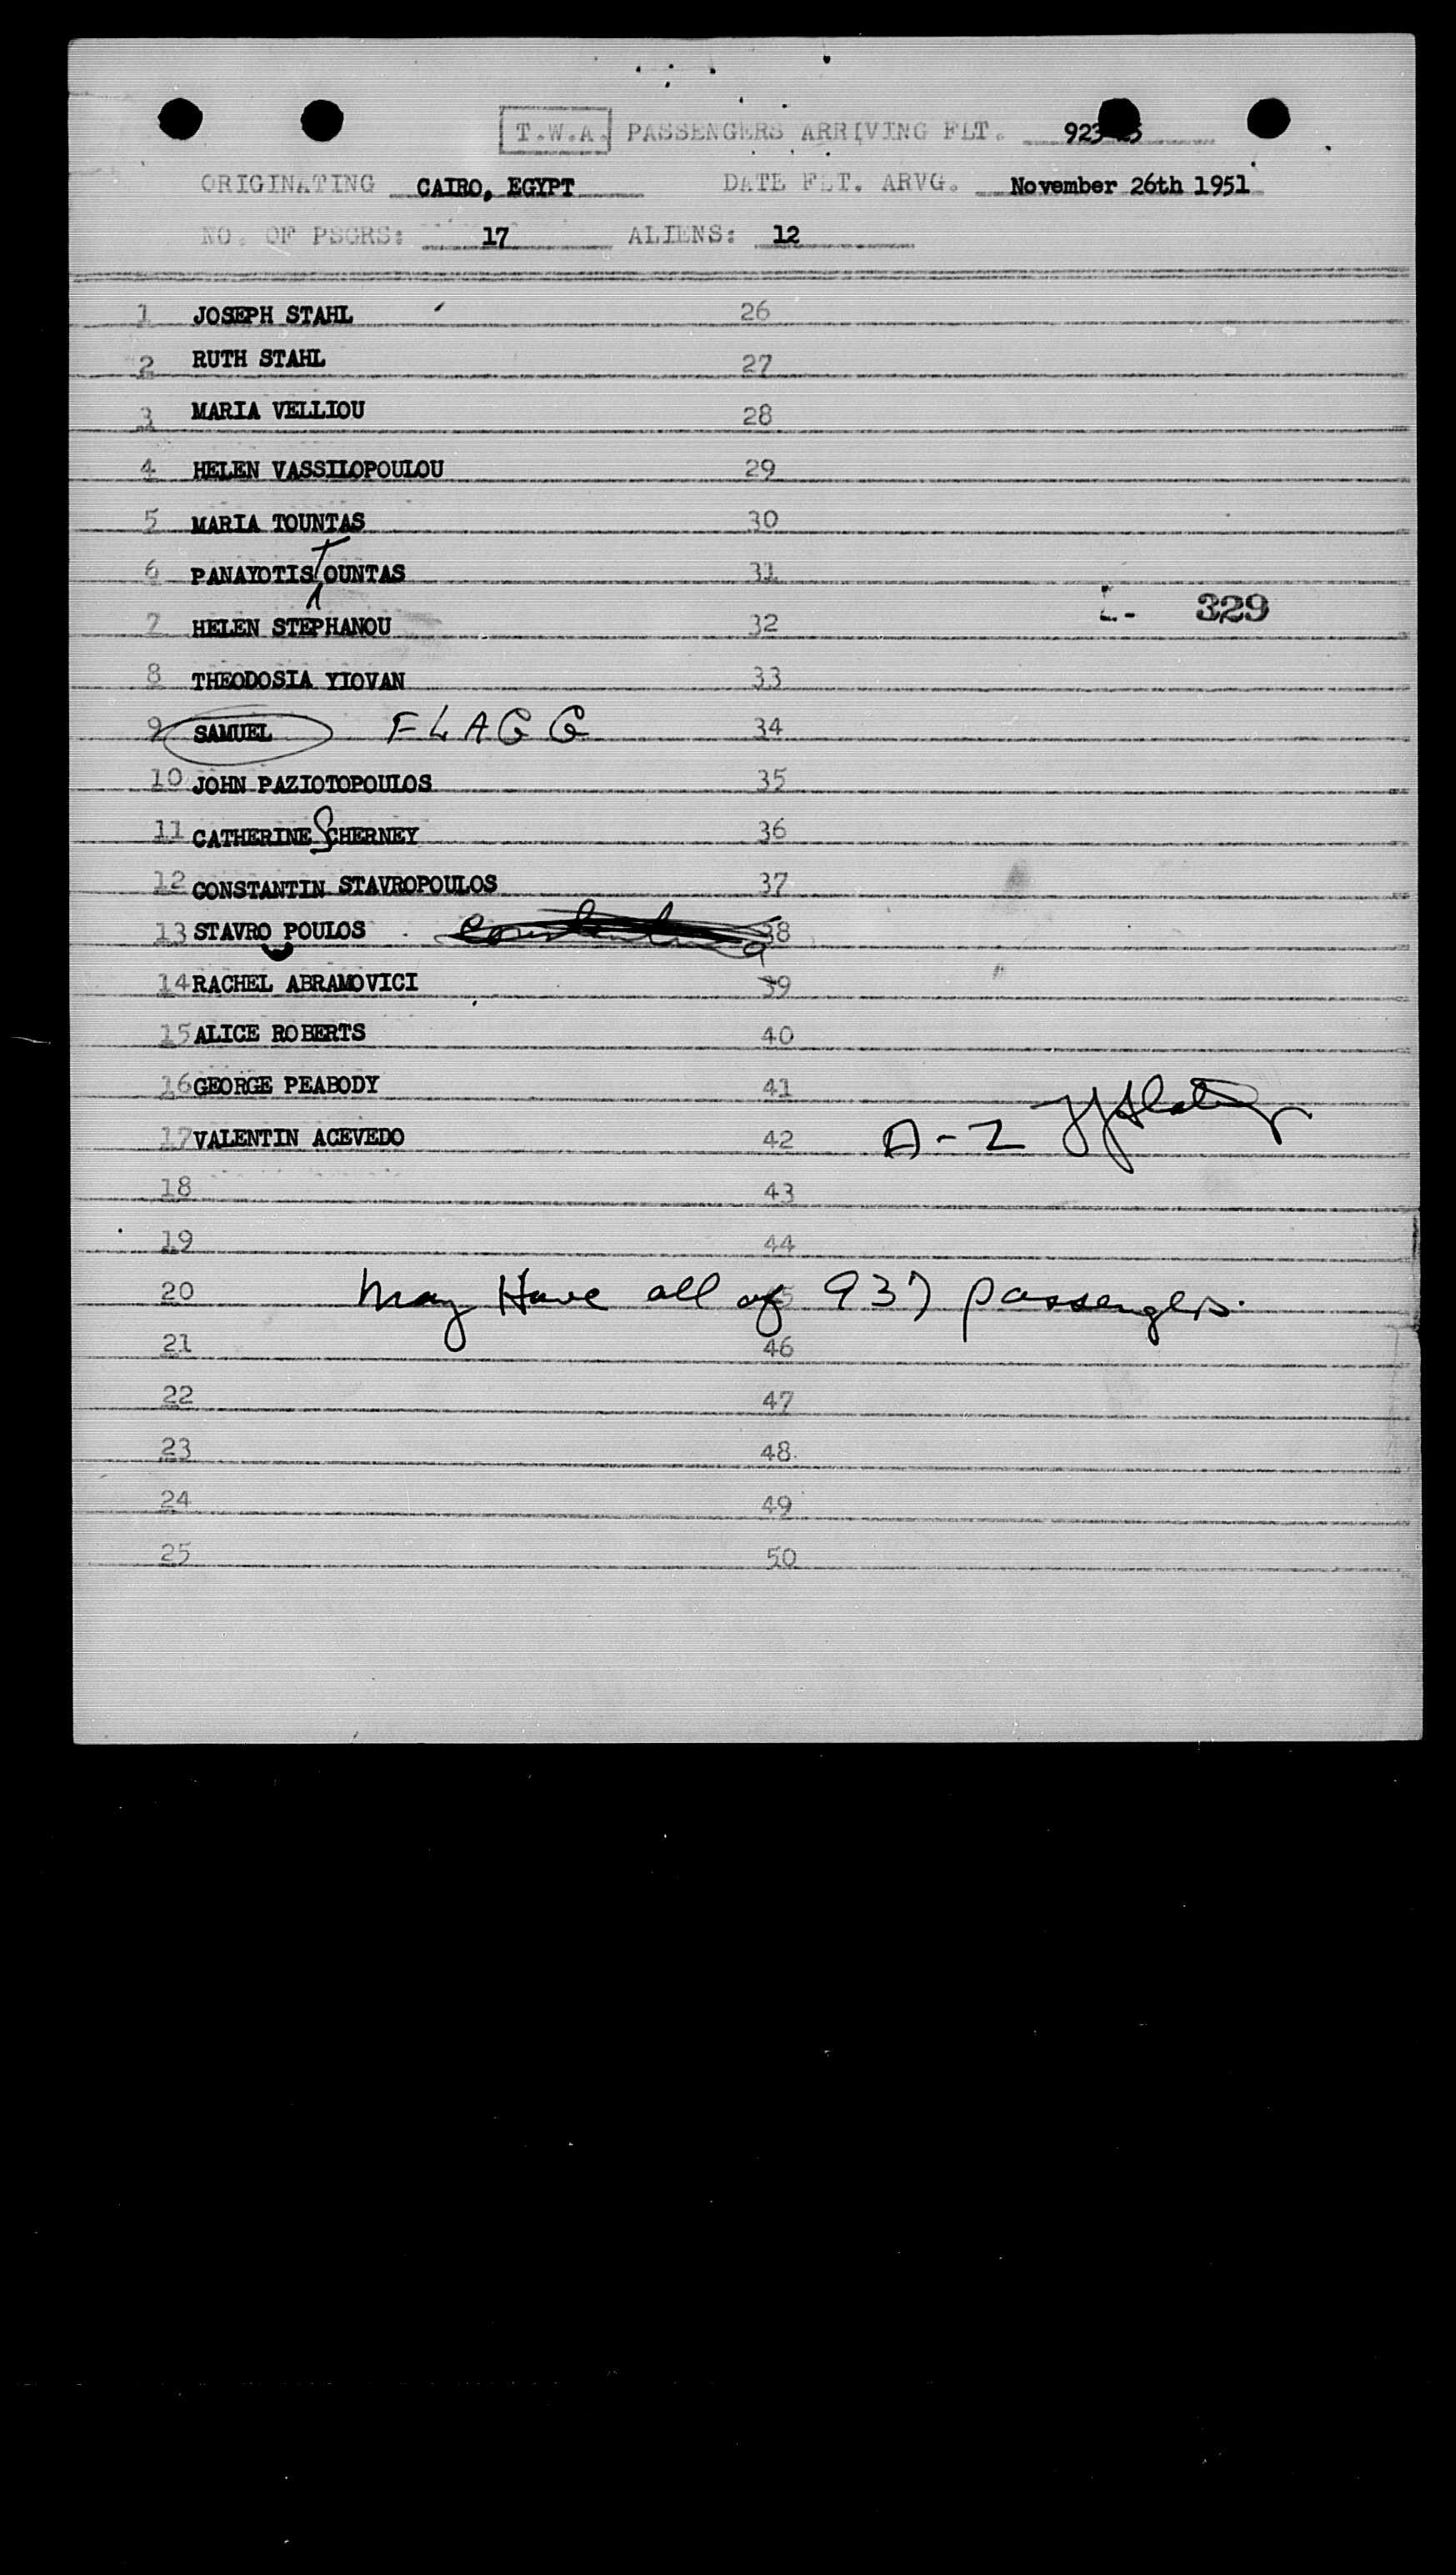 T.W.A. PASSENGERS ARRIVING FLT. 923
ORIGINATING CAIRO, EGYPT DATE FLT. ARVG. November 26th 1951
NO. OF PSGRS: 17 ALIENS: 12
1 JOSEPH STAHL 26
2 RUTH STAHL 27
3 MARIA VELLIOU 28
4 HELEN VASSILOPOULOU 29
5 MARIA TOUNTAS 30
6 PANAYOTIS TOUNTAS 31
329
7 HELEN STEPHANOU 32
8 THEODOSIA YIOVAN 33
9 SAMUEL FLAGG 34
10 JOHN PAZIOTOPOULOS 35
11 CATHERINE SCHERNEY 36
12 CONSTANTIN STAVROPOULOS 37
13 STAVRO POULOS 38
14 RACHEL ABRAMOVICI 39
15 ALICE ROBERTS 40
16 GEORGE PEABODY 41
17 VALENTIN ACEVEDO 42 A-Z
18 43
19 44
20 May Have all of 937 passengers. 45
21 46
22 47
23 48
24 49
25 50